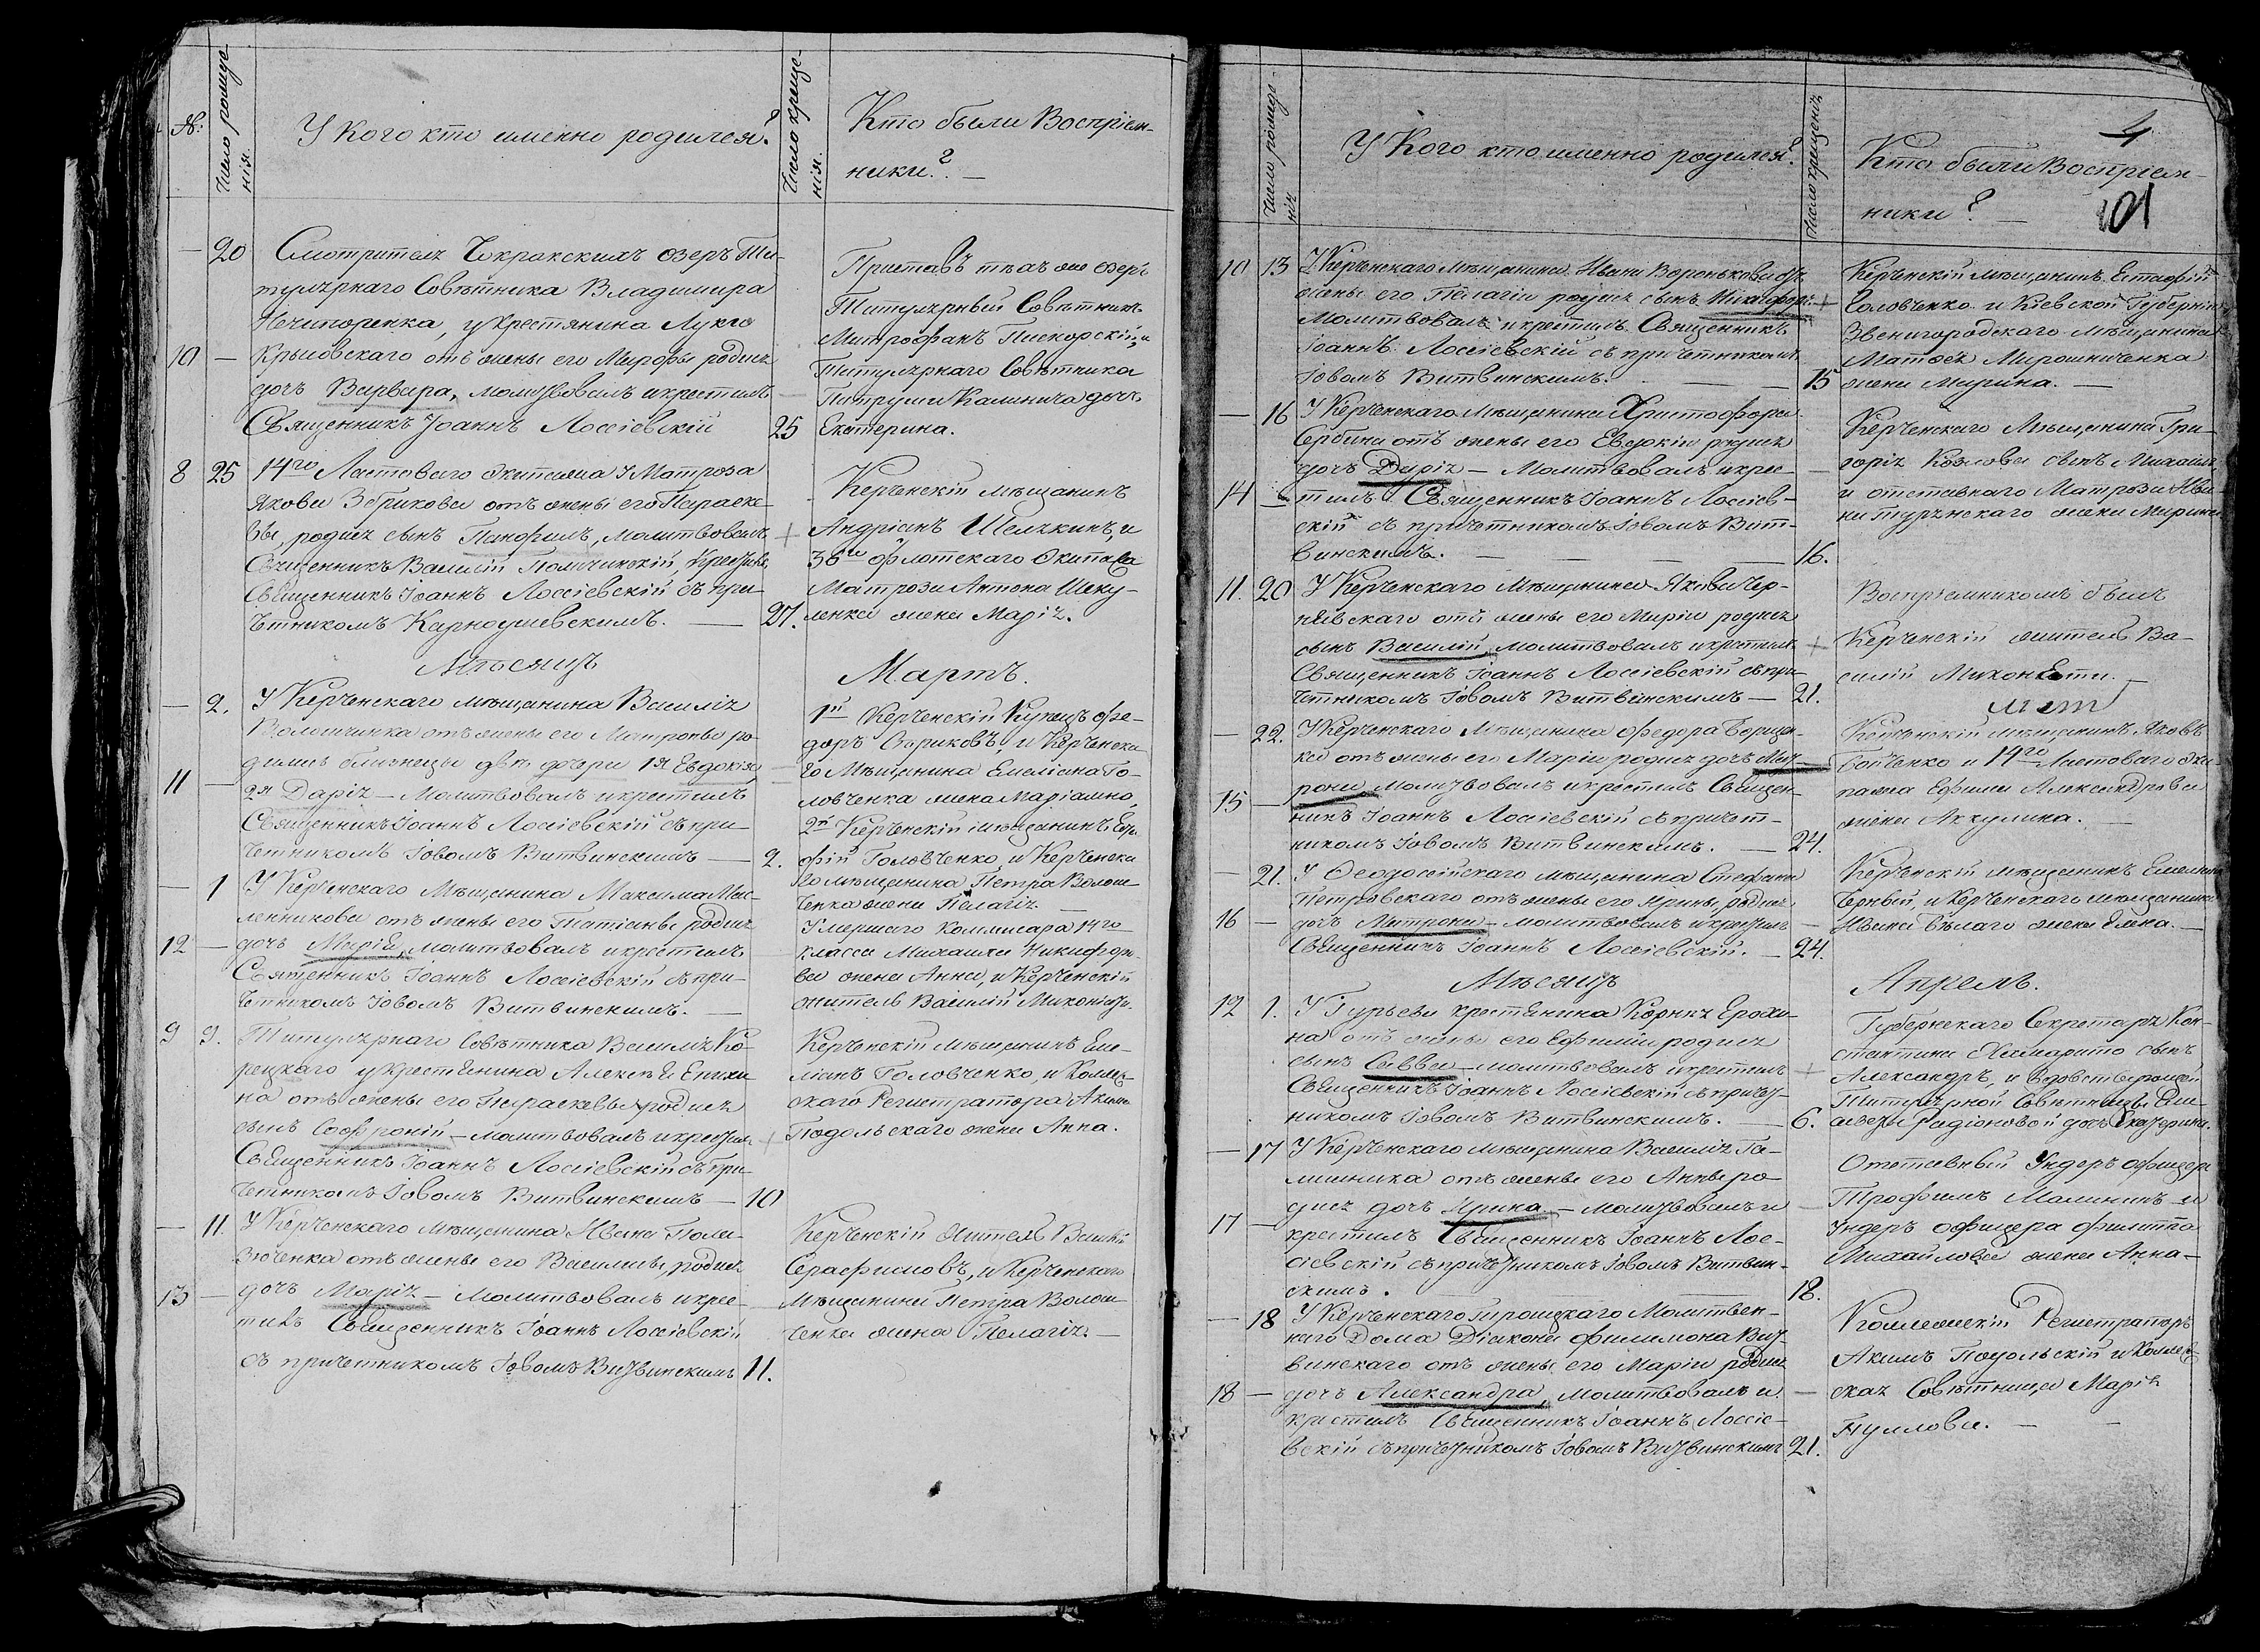 №:
Число рожде-
нія.
У Кого кто именно родился?
Число креще-
нія.
Кто были Воспріем-
ники? —
— 20 Смотрителя Чокракскихъ озеръ Ти-
тулярнаго Совѣтника Владимира
Нечипоренка, у крестянина Луки
10 — Крыловскаго отъ жены его Марфы родилась
дочь Варвара, молитвовалъ и крестилъ
Священникъ Іоаннъ Лоссіевскій 25
Приставъ тѣхъ же озеръ
Титулярный Совѣтникъ
Митрофанъ Пискорскій, и
Титулярнаго Совѣтника
Калинича дочь
Екатерина.
8 25 14го Ластоваго Экипажа У Матроза
Якова Зерикова отъ жены его Параске-
вы, родился сынъ Панфилъ, молитвовалъ
Священникъ Василій Крестилъ
Священникъ Іоаннъ Лоссіевскій съ при-
четникомъ Карнаушевскимъ. — 27.
Керченскій мѣщанинъ
Андріанъ Шелкинъ, и
36го флотскаго Экипажа
Матроза Антона Шеку-
ленка жена Марія.
Мѣсяцъ Мартъ.
— 2. У Керченскаго мѣщанина Василія
Волошченка отъ жены его Матроны ро-
дились близнецы двѣ дочери 1я Евдокія
11 — 2я Дарія — Молитвовалъ и крестилъ
Священникъ Іоаннъ Лоссіевскій съ при-
четникомъ Іовомъ Витвинскимъ — 2.
1й Керченскій Купецъ Фе-
доръ и Керченска-
го Мѣщанина Емеліана Го-
ловченка жена Маріамна,
2й Керченскій мѣщанинъ
Головченко, и Керченска-
го мѣщанина Петра Волош-
ченка жена Пелагія.
— 1 У Керченскаго Мѣщанина Максима Мас-
ленникова отъ жены его Татіаны родилась
12 — дочь Марія, молитвовалъ и крестилъ
Священникъ Іоаннъ Лоссіевскій съ при-
четникомъ Іовомъ Витвинскимъ. —
Умершаго Коммисара 14го
класса Никифоро-
ва жена Анна, и Керченскій
житель Василій
9 9. Титулярнаго Совѣтника Василія Ко-
рецкаго у крестянина Алексѣя Епихи-
на отъ жены его Параскевы родился
сынъ Софроній — молитвовалъ и крестилъ
Священникъ Іоаннъ Лоссіевскій съ при-
четникомъ Іовомъ Витвинскимъ — 10
Керченскій мѣщанинъ Еме-
ліанъ Головченко, и Коллеж-
скаго Регистратора Акима
Подольскаго жена Анна.
— 11. У Керченскаго мѣщанина Ивана Поли-
зюченка отъ жены его Василисы, родилась
13 — дочь Марія — Молитвовалъ и крес-
тилъ Священникъ Іоаннъ Лоссіевскій
съ причетникомъ Іовомъ Витвинскимъ 11.
Керченскій Житель Василій
Серафимовъ, и Керченскаго
Мѣщанина Петра Волош-
ченка жена Пелагія. —
4
101
Число рожде-
нія
У Кого кто именно родился?
Число крещенія
Кто были Воспріем-
ники? —
10 13 У Керченскаго мѣщанина Ивана Воронькова отъ
жены его Пелагіи родился сынъ Никифоръ
Молитвовалъ и крестилъ Священникъ
Іоаннъ Лоссіевскій съ причетникомъ
Іовомъ Витвинскимъ. — 15
Керченскій мѣщанинъ
Головченко и Кіевской Губерніи
Звенигородскаго мѣщанина
Матфея Мирошниченка
жена Марина. —
— 16 У Керченскаго Мѣщанина Христофора
Сербина отъ жены его Евдокіи родилась
дочь Дарія — Молитвовалъ и крес-
14 — тилъ Священникъ Іоаннъ Лоссіев-
скій съ причетникомъ Іовомъ Вит-
винскимъ. — 16.
Керченскаго Мѣщанина Гри-
горія Козлова сынъ Михаилъ
и отставнаго Матроза Ива-
на жена Марина
11. 20 У Керченскаго Мѣщанина Якова Чер-
нявскаго отъ жены его Маріи родился
сынъ Василій, молитвовалъ и крестилъ
Священникъ Іоаннъ Лоссіевскій съ при-
четникомъ Іовомъ Витвинскимъ — 21.
Воспріемникомъ былъ
Керченскій житель Ва-
силій
— 22. У Керченскаго Мѣщанина Федора Борщен-
ка отъ жены его Маріи родилась дочь Мат-
15 — рона, Молитвовалъ и крестилъ Священ-
никъ Іоаннъ Лоссіевскій съ причет-
никомъ Іовомъ Витвинскимъ. — 24.
Керченскій мѣщанинъ Яковъ
Бойченко и 14го Ластоваго Эки-
пажа Ефима Александрова
жена Аккулина.
— 21. У Феодосійскаго мѣщанина Стефана
Петровскаго отъ жены его Ирины, родилась
16 — дочь Матрона — молитвовалъ и крестилъ
Священникъ Іоаннъ Лоссіевскій. — 24.
Керченскій мѣщанинъ Емельянъ
Черный, и Керченскаго мѣщанина
Ивана Бѣлаго жена Елена. —
Мѣсяцъ Апрель.
12 1. У Гурьева крестянина Корнія Ерохи-
на отъ жены его Ефиміи родился
сынъ Савва — молитвовалъ и крестилъ
Священникъ Іоаннъ Лоссіевскій съ причет-
никомъ Іовомъ Витвинскимъ. — 6.
Губернскаго Секретаря Кон-
стантина сынъ
Александръ, и вдовствующей
Титулярной Совѣтницы Ели-
саветы Радіоновой дочь Екатерина.
— 17 У Керченскаго мѣщанина Василія Га-
лишника отъ жены его Анны ро-
дилась дочь Ирина — молитвовалъ и
17 — крестилъ Священникъ Іоаннъ Лос-
сіевскій съ причетникомъ Іовомъ Витвин-
скимъ. 18.
Отставный Ундеръ офицеръ
Трофимъ Малининъ и
Ундеръ офицера Филиппа
Михайлова жена Анна —
— 18 У Керченскаго Троицкаго Молитвен-
наго Дома Діакона Филимона Вит-
винскаго отъ жены его Маріи родилась
18 — дочь Александра, молитвовалъ и
крестилъ Священникъ Іоаннъ Лоссіе-
вскій съ причетникомъ Іовомъ Витвинскимъ 21.
Коллежскій Регистраторъ
Акимъ Подольскій и Коллеж-
ская Совѣтница Марія